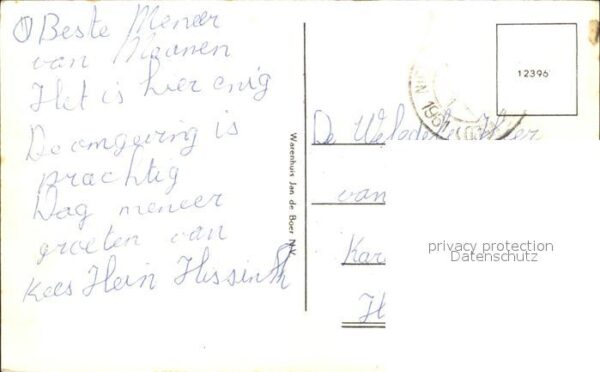 Beste Meneer
van Maanen
Het is hier enig
De omgeving is
prachtig
Dag meneer
groeten van
Kees Hein Hissink
Warenhuis Jan de Boer N.V.
1961
12396
De Weledele Heer
van
Kar
H
privacy protection
Datenschutz